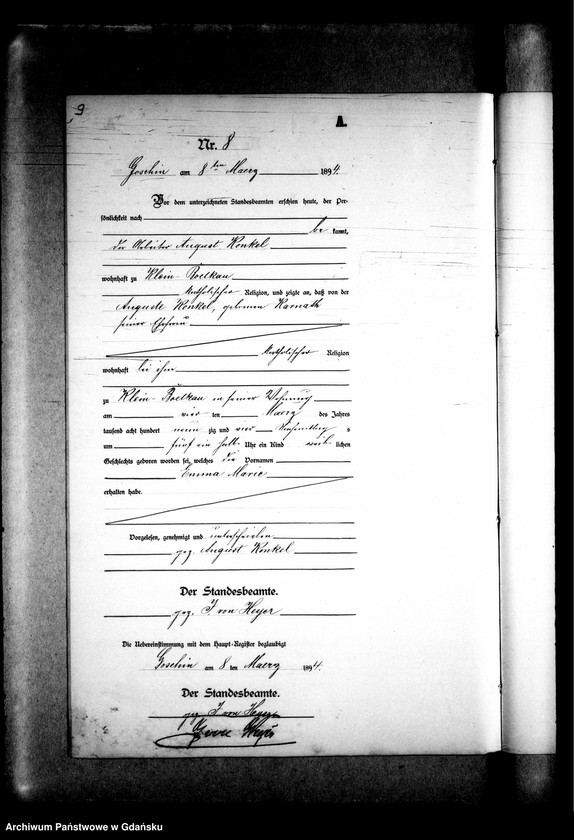 9
A.
Nr. 8
Goschin am 8ten Maerz 1894.
Vor dem unterzeichneten Standesbeamten erschien heute, der Per-
sönlichkeit nach
be kannt,
der Arbeiter August Konkel
wohnhaft zu Klein-Roelkau
katholischer Religion, und zeigte an, daß von der
Auguste Konkel, geborenen Karnath
seiner Ehefrau
katholischer Religion
wohnhaft bei ihm
zu Klein-Roelkau in seiner Wohnung
am vier ten Maerz des Jahres
tausend acht hundert neun zig und vier Nachmittag s
um fünf ein halb Uhr ein Kind weib lichen
Geschlechts geboren worden sei, welches die Vornamen
Emma Marie
erhalten habe.
Vorgelesen, genehmigt und unterschrieben
gez. August Konkel
Der Standesbeamte.
gez. J. von Heyer
Die Uebereinstimmung mit dem Haupt-Register beglaubigt
Goschin am 8 ten Maerz 1894.
Der Standesbeamte.
gez. J. von Heyer
von Heyer
Archiwum Państwowe w Gdańsku